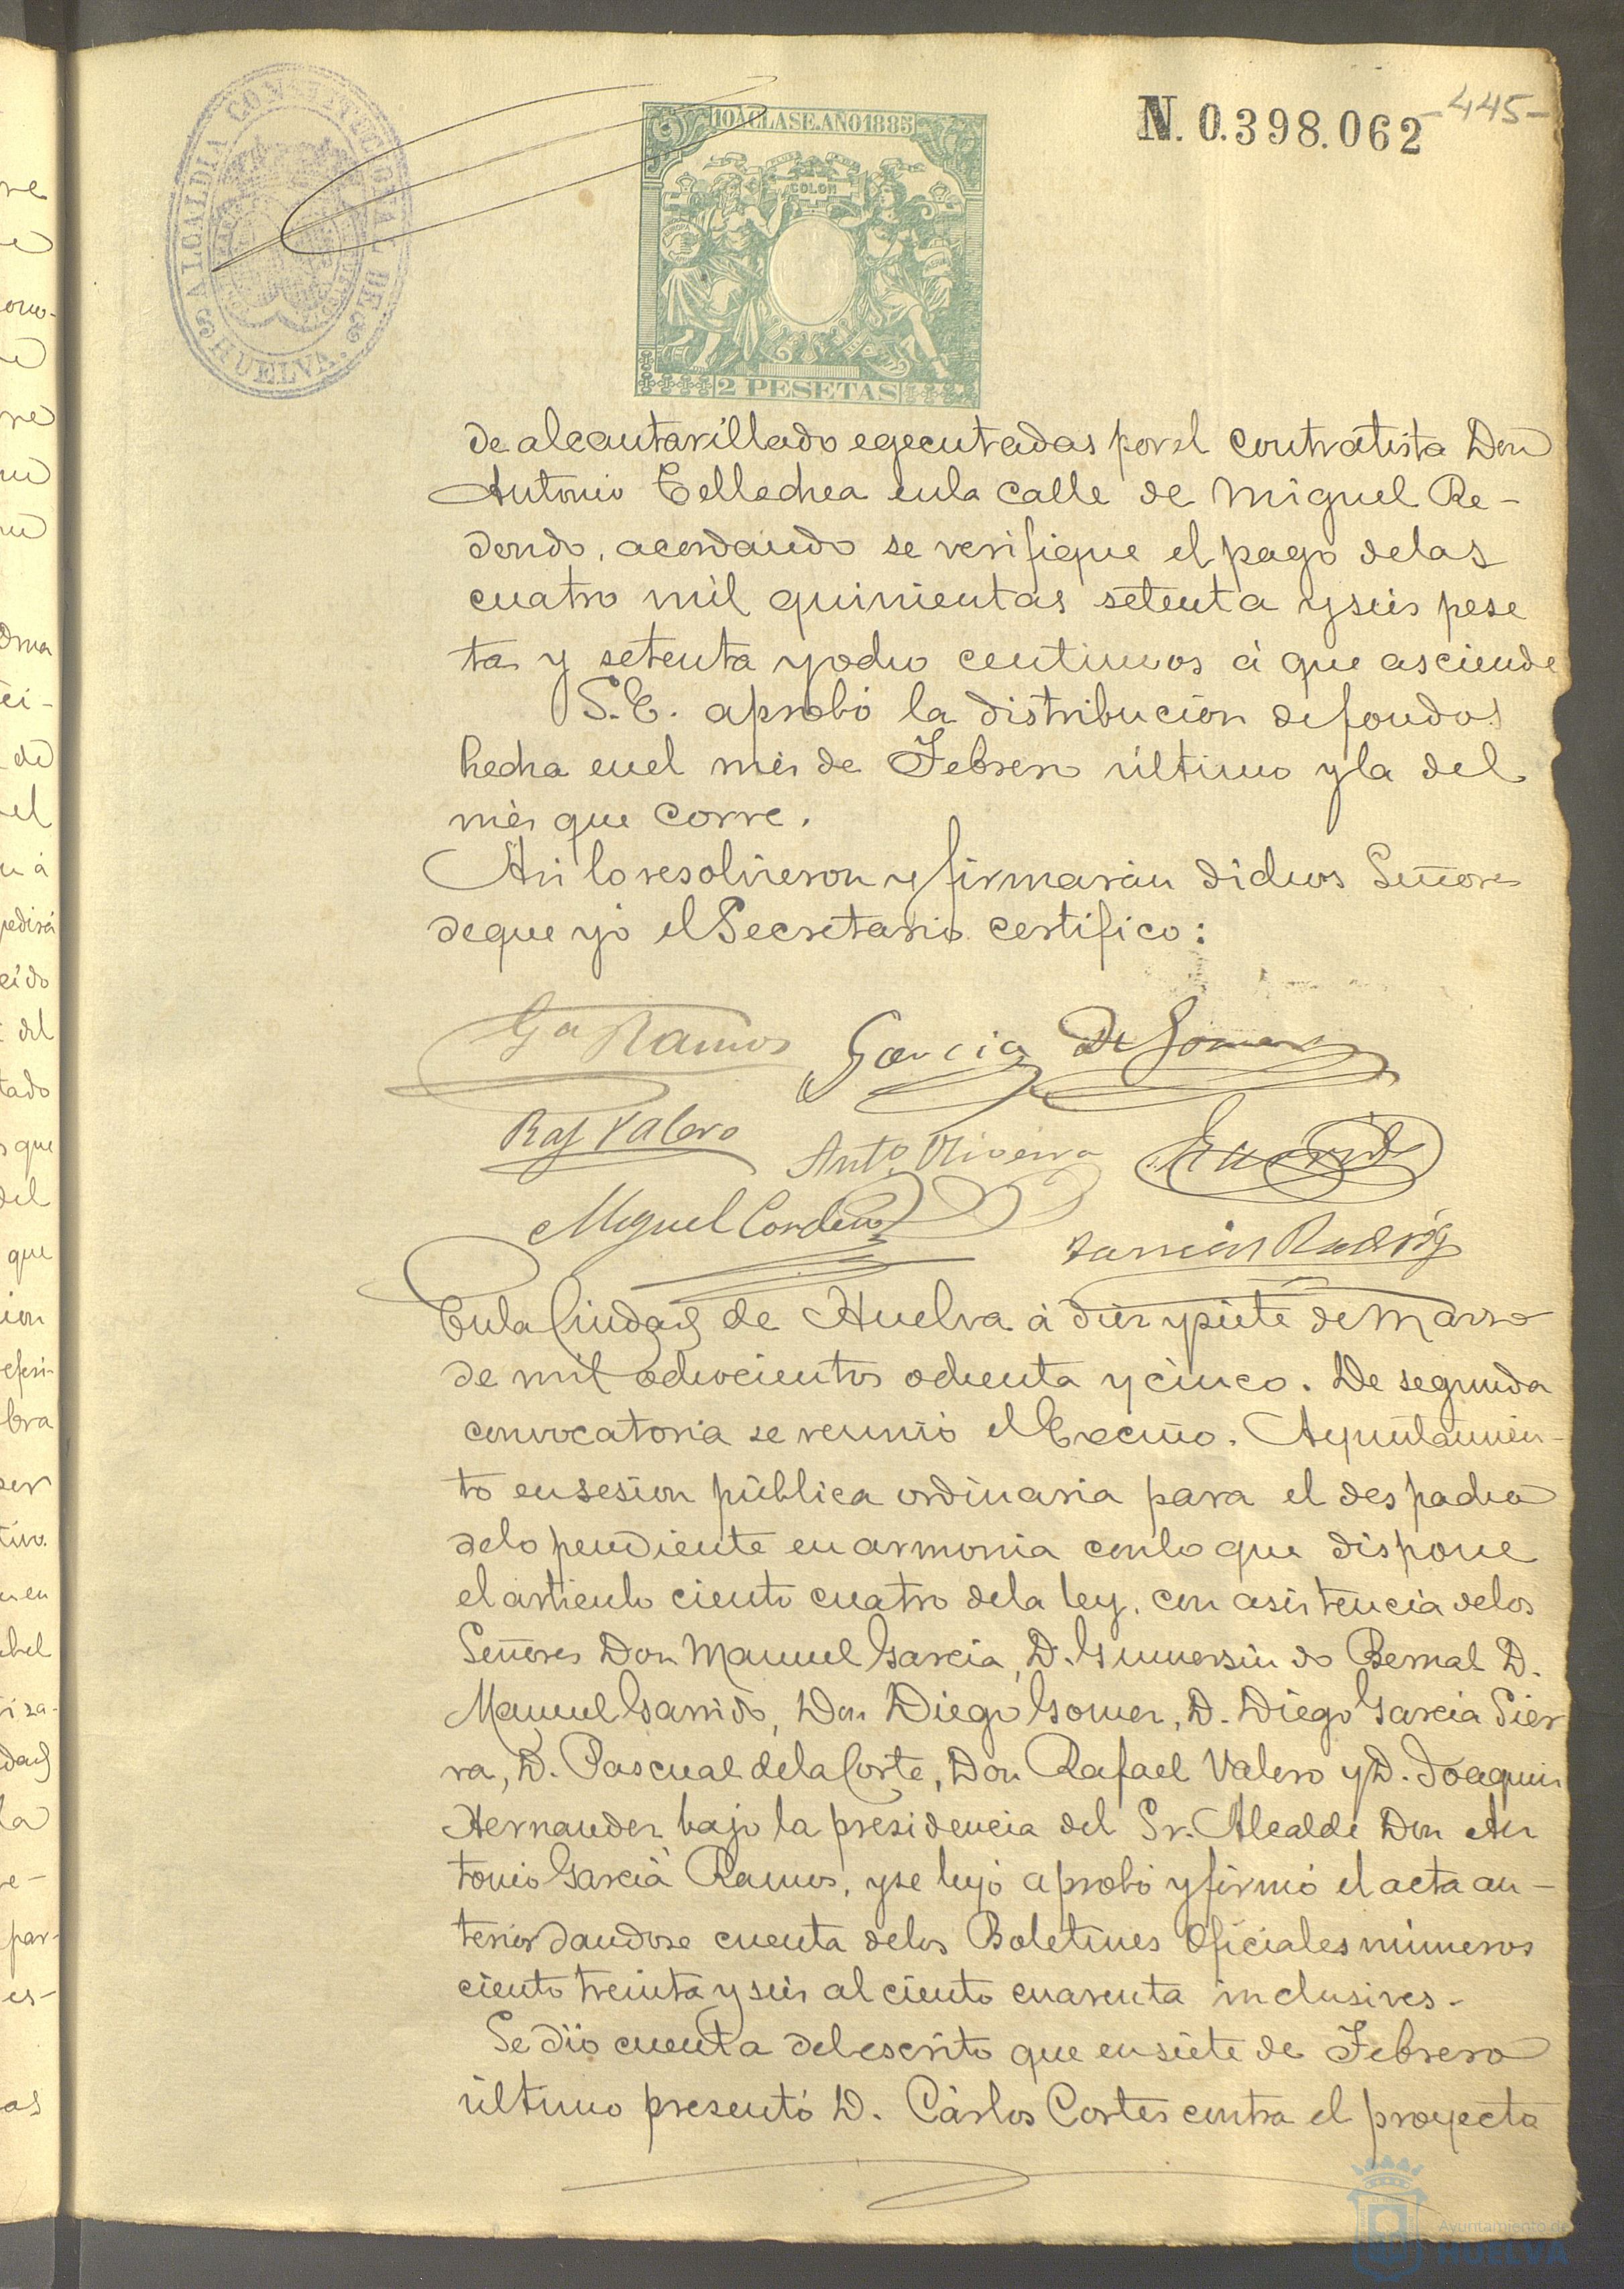 ALCALDIA CONSTITUCIONAL DE HUELVA
10A CLASE. AÑO 1885
COLON
2 PESETAS
N. 0.398.062
-445-
de alcantarillado egecutadas por el contratista Don
Antonio Tellechea en la calle de Miguel Re-
dondo, acordando se verifique el pago de las
cuatro mil quinientas setenta y seis pese
tas y setenta y ocho centimos á que asciende
S.E. aprobó la distribución de fondos
hecha en el més de Febrero último y la del
més que corre.
Asi lo resolvieron y firmarán dichos Señores
de que yó el Secretario certífico:
Ga Ramos Garcia
Raf Valero Anto Oliveira
Miguel Cordero
En la Ciudad de Huelva á diez y siete de Marzo
de mil ochocientos ochenta y cinco. De segunda
convocatoria se reunió el Excmo. Ayuntamien-
to en sesion pública ordinaria para el despacho
de lo pendiente en armonia con lo que dispone
el articulo ciento cuatro de la ley, con asistencia de los
Señores Don Manuel Garcia, D. Gumersindo Bernal D.
Manuel Garrido, Don Diego Gomez, D. Diego Garcia Sier
ra, D. Pascual de la Corte, Don Rafael Valero y D. Joaquin
Hernandez bajo la presidencia del Sr. Alcalde Don An
tonio Garcia Ramos, y se leyó aprobó y firmó el acta an-
terior dandose cuenta de los Boletines Oficiales números
ciento treinta y seis al ciento cuarenta inclusives.
Se dió cuenta del escrito que en siete de Febrero
último presentó D. Cárlos Cortes contra el proyecto
Ayuntamiento de
HUELVA